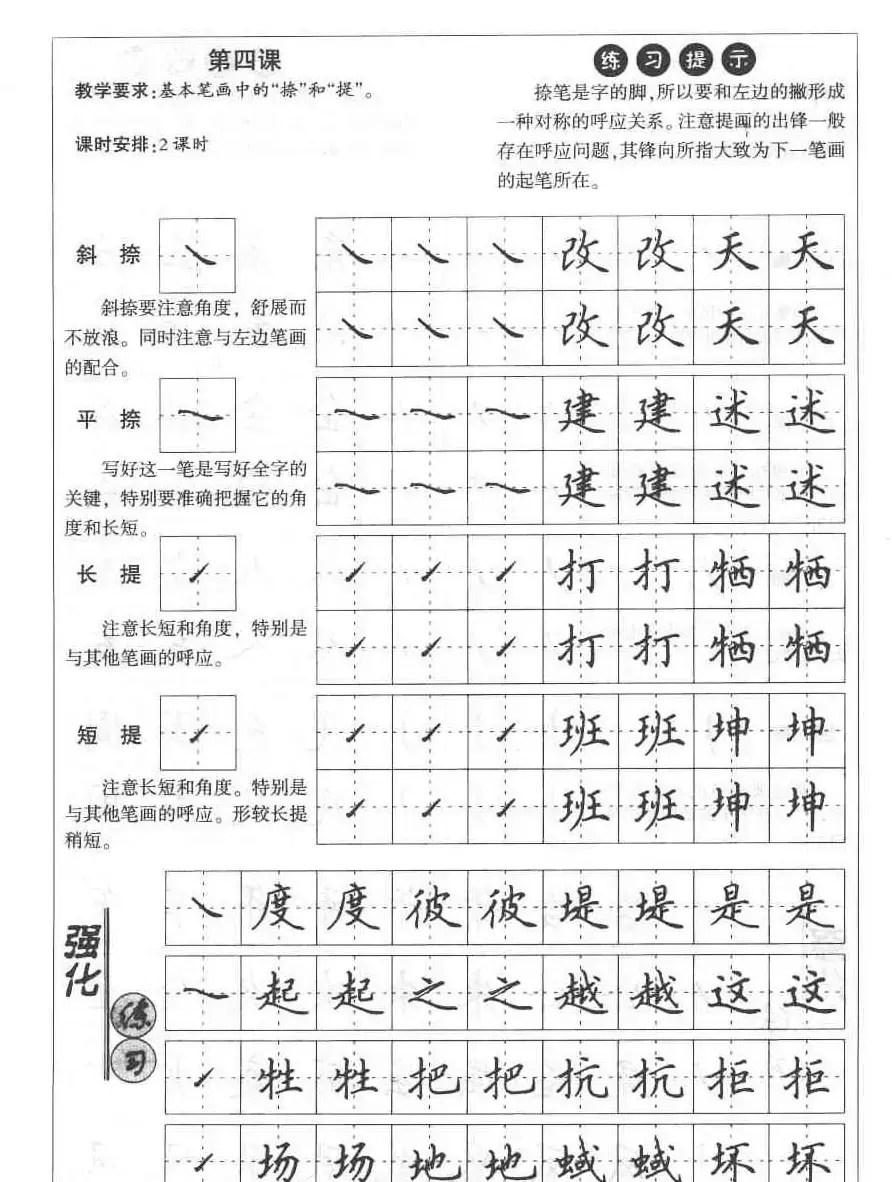 第四课
教学要求:基本笔画中的“捺”和“提”。
课时安排:2课时
练习提示
捺笔是字的脚,所以要和左边的撇形成
一种对称的呼应关系。注意提画的出锋一般
存在呼应问题,其锋向所指大致为下一笔画
的起笔所在。
斜捺
㇏ ㇏ ㇏ ㇏ 改 改 天 天
㇏ ㇏ ㇏ 改 改 天 天
斜捺要注意角度，舒展而
不放浪。同时注意与左边笔画
的配合。
平捺
㇏ ㇏ ㇏ ㇏ 建 建 述 述
㇏ ㇏ ㇏ 建 建 述 述
写好这一笔是写好全字的
关键，特别要准确把握它的角
度和长短。
长提
㇀ ㇀ ㇀ ㇀ 打 打 牺 牺
㇀ ㇀ ㇀ 打 打 牺 牺
注意长短和角度，特别是
与其他笔画的呼应。
短提
㇀ ㇀ ㇀ ㇀ 班 班 坤 坤
㇀ ㇀ ㇀ 班 班 坤 坤
注意长短和角度。特别是
与其他笔画的呼应。形较长提
稍短。
强化
练习
㇏ 度 度 彼 彼 堤 堤 是 是
㇏ 起 起 之 之 越 越 这 这
㇀ 牲 牲 把 把 抗 抗 拒 拒
㇀ 场 场 地 地 蜮 蜮 坏 坏